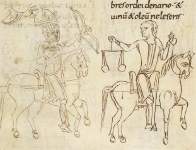 bresordeidenario·&
uinū&oleūneleseris